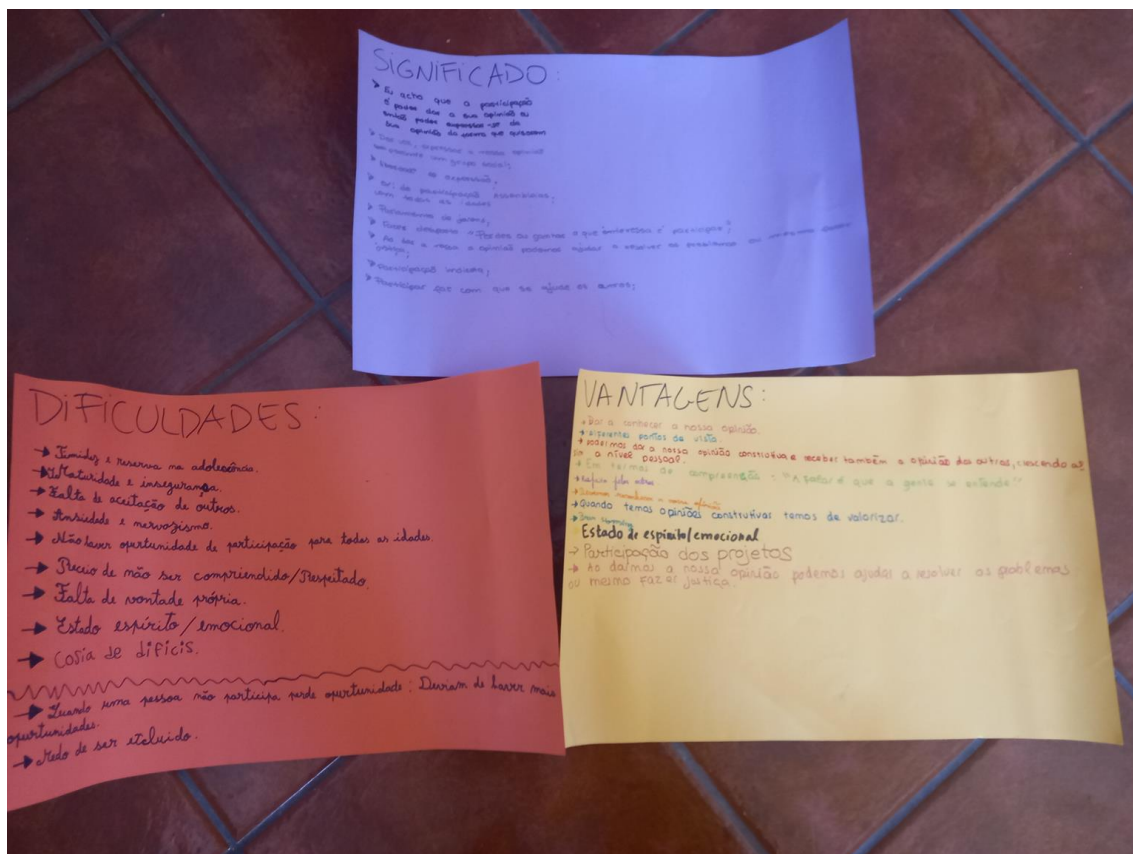 SIGNIFICADO:
➤ Eu acho que a participação
é poder dar a sua opinião ou
então poder expressar-se da
sua opinião da forma que quiserem
expressar a nossa opinião
um grupo social;
➤ de expressão;
➤ de participação assembleias,
com todas as idades
➤ de jovens;
➤ Frase desporto "Perder ou ganhar o que interessa é participar";
➤ Ao dar a nossa opinião podemos ajudar a resolver os problemas ou mesmo fazer
justiça;
➤ Participação
➤ Participar faz com que se ajude os outros;
DIFICULDADES:
→ Timidez e reserva na adolescência.
→ Maturidade e insegurança.
→ Falta de aceitação de outros.
→ Ansiedade e nervosismo.
→ Não haver oportunidade de participação para todas as idades.
→ Receio de não ser compriendido/Respeitado.
→ Falta de vontade própria.
→ Estado espírito/emocional.
→ Cosia de difícis.
→ Quando uma pessoa não participa perde opurtunidade: Deviam de haver mais
opurtunidades.
→ Medo de ser excluido.
VANTAGENS:
→ Dar a conhecer a nossa opinião.
→ Diferentes pontos de vista.
→ podermos dar a nossa opinião construtiva e receber também a opinião dos outros, crescendo as
sim a nível pessoal.
→ Em termos de compreensão: "A falar é que a gente se entende!"
→ pelos outros
→ a nossa opinião
→ Quando temos opiniões construtivas temos de valorizar.
→ Brain
Estado de espírito/emocional
→ Participação dos projetos
→ Ao darmos a nossa opinião podemos ajudar a resolver os problemas
ou mesmo fazer justiça.